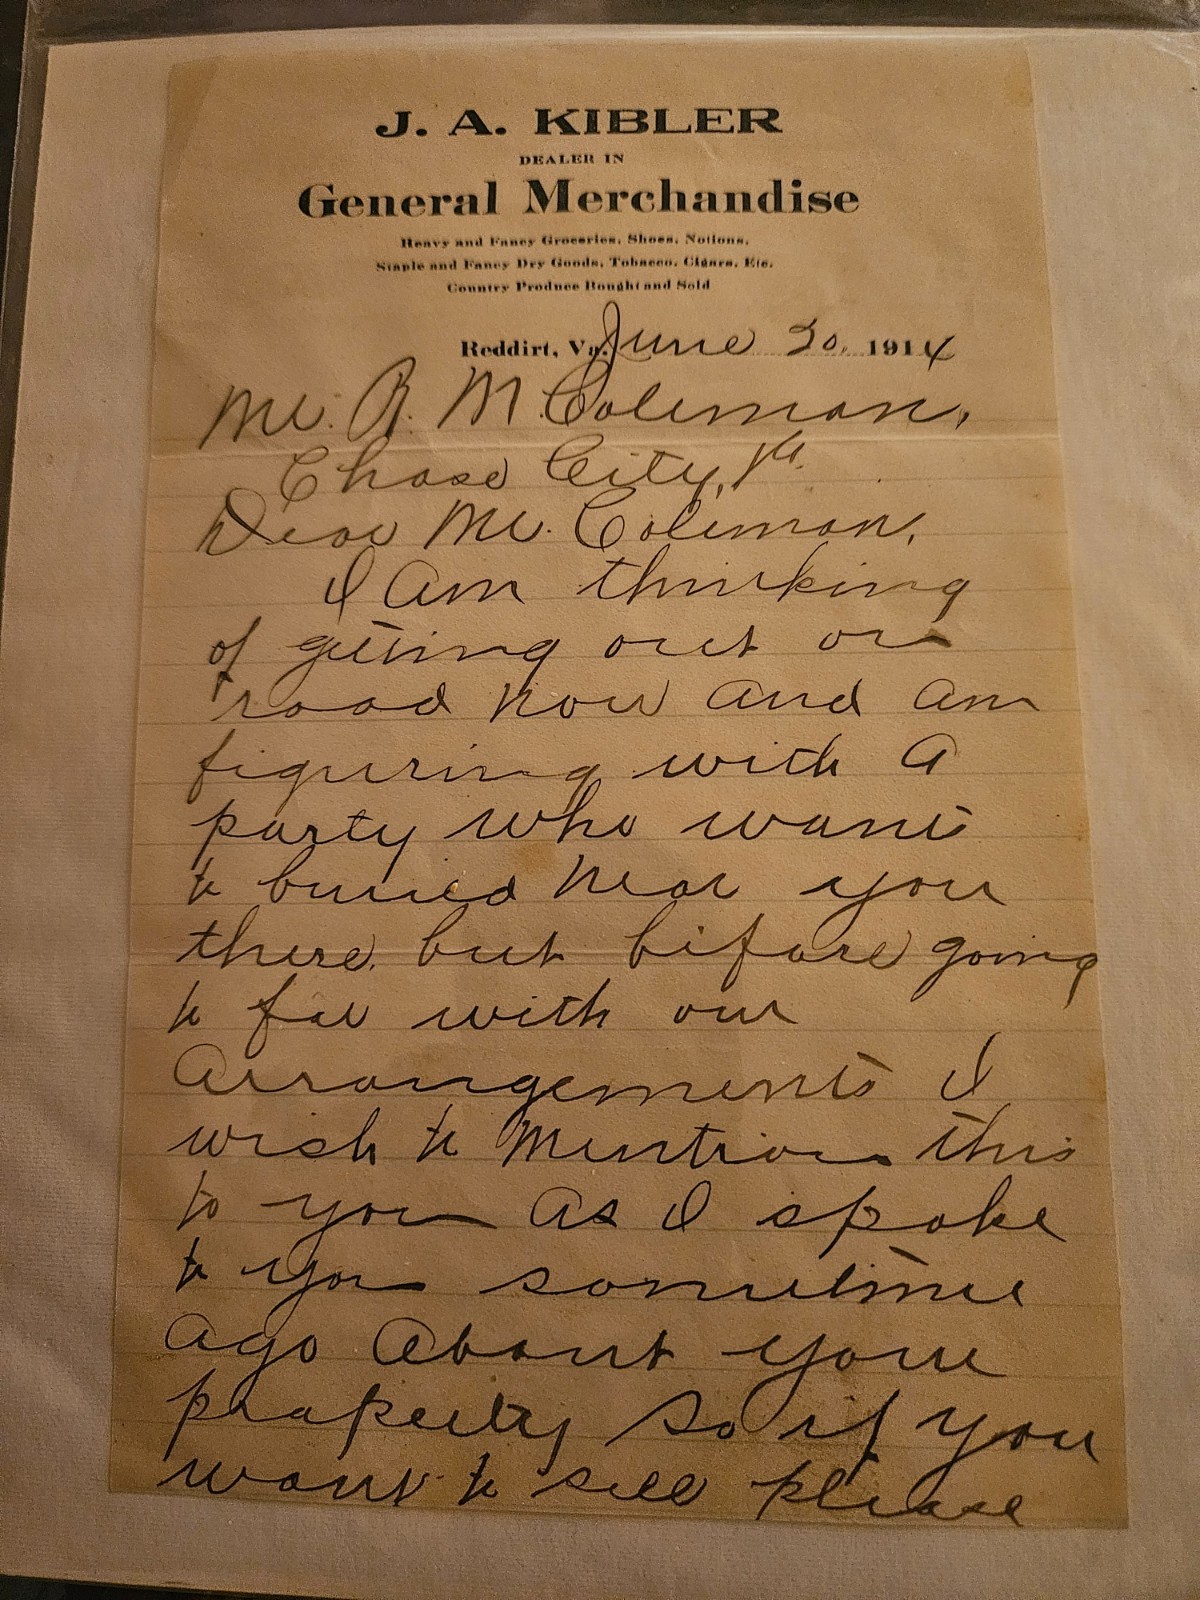 J. A. KIBLER
DEALER IN
General Merchandise
Heavy and Fancy Groceries, Shoes, Notions,
Staple and Fancy Dry Goods, Tobacco, Cigars, Etc.
Country Produce Bought and Sold
Reddirt, Va. June 30, 1914
Mr. R. M. Coleman,
Chase City, Va.
Dear Mr. Coleman,
I am thinking
of getting out on
road now and am
figuring with a
party who wants
to buried near you
there, but before going
to far with our
arrangements I
wish to mention this
to you as I spoke
to you sometime
ago about your
property so if you
want to sell please